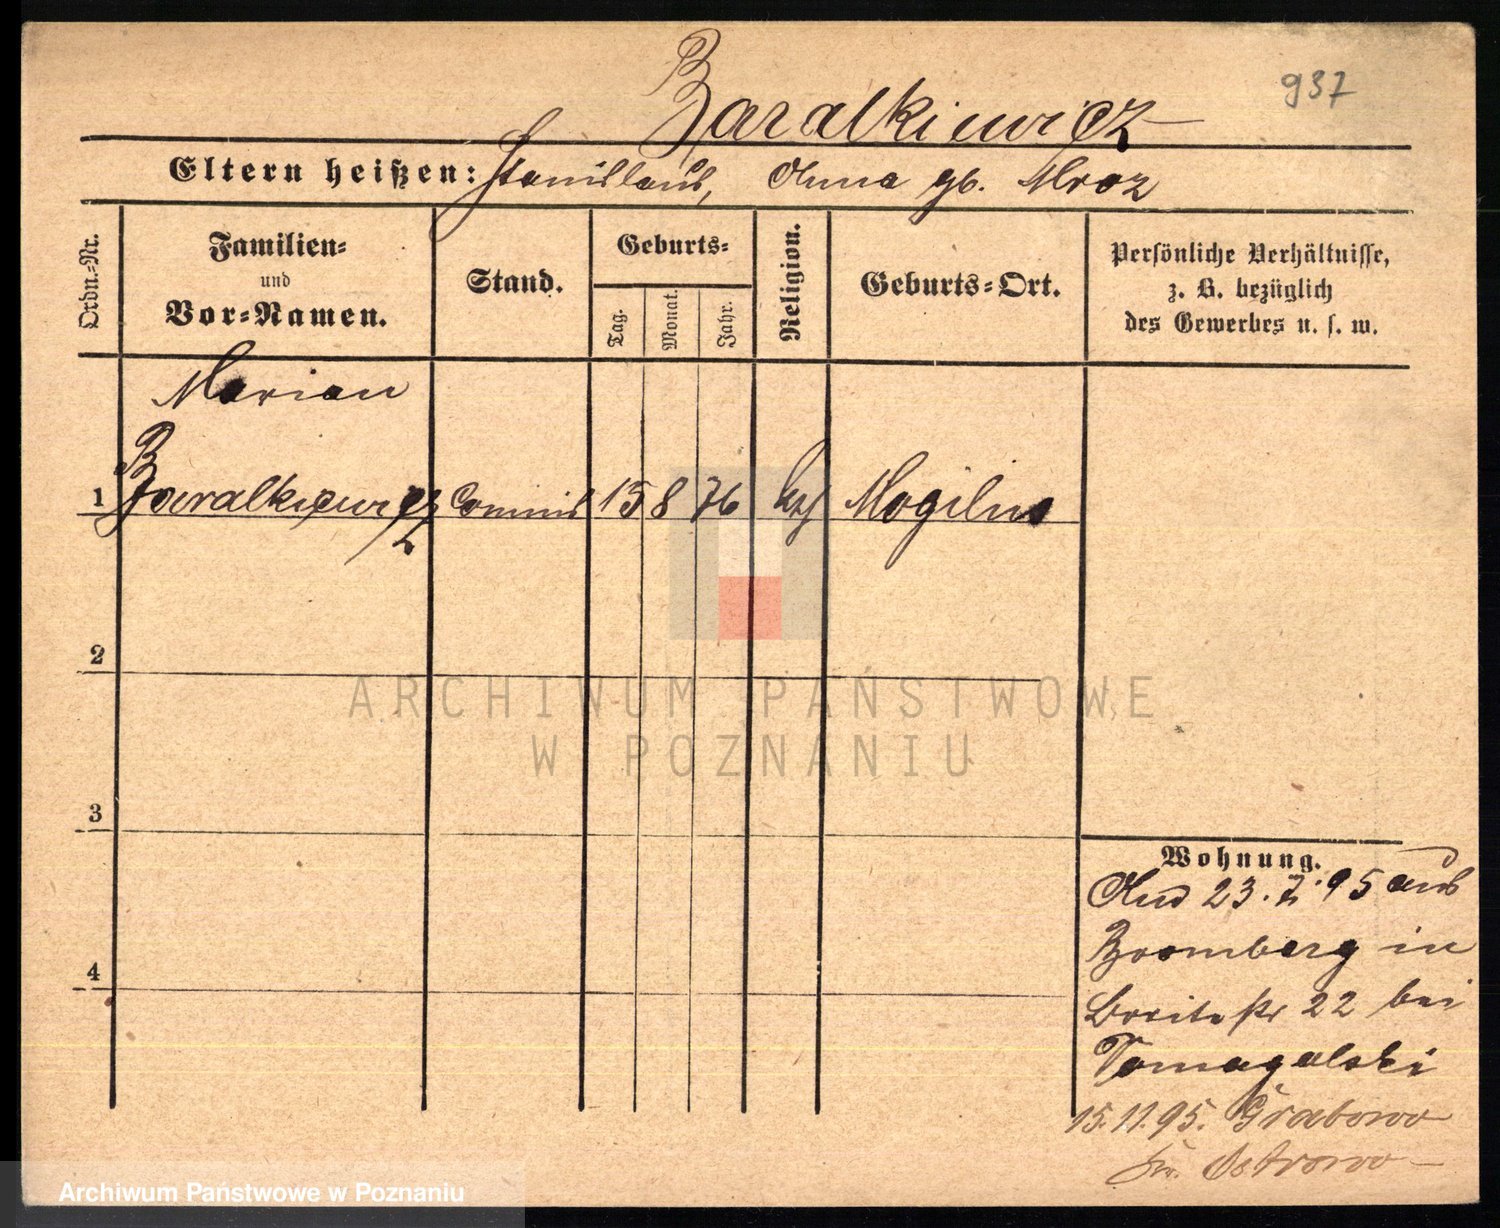 937
Baralkiewicz
Eltern heißen: Stanislaus, Anna gb. Mroz
Ordn.-Nr.
Familien-
und
Vor-Namen.
Stand.
Geburts-
Tag.
Monat.
Jahr.
Religion.
Geburts-Ort.
Persönliche Verhältnisse,
z. B. bezüglich
des Gewerbes u. s. w.
Marian
1 Baralkiewicz Commis 15 8 76 kth Mogilno
2
3
4
ARCHIWUM PAŃSTWOWE
W POZNANIU
Wohnung.
23.7.95 aus
Bromberg in
Breitestr 22 bei
Tomagalski
15.11.95. Grabowo
Kr. Ostrowo
Archiwum Państwowe w Poznaniu